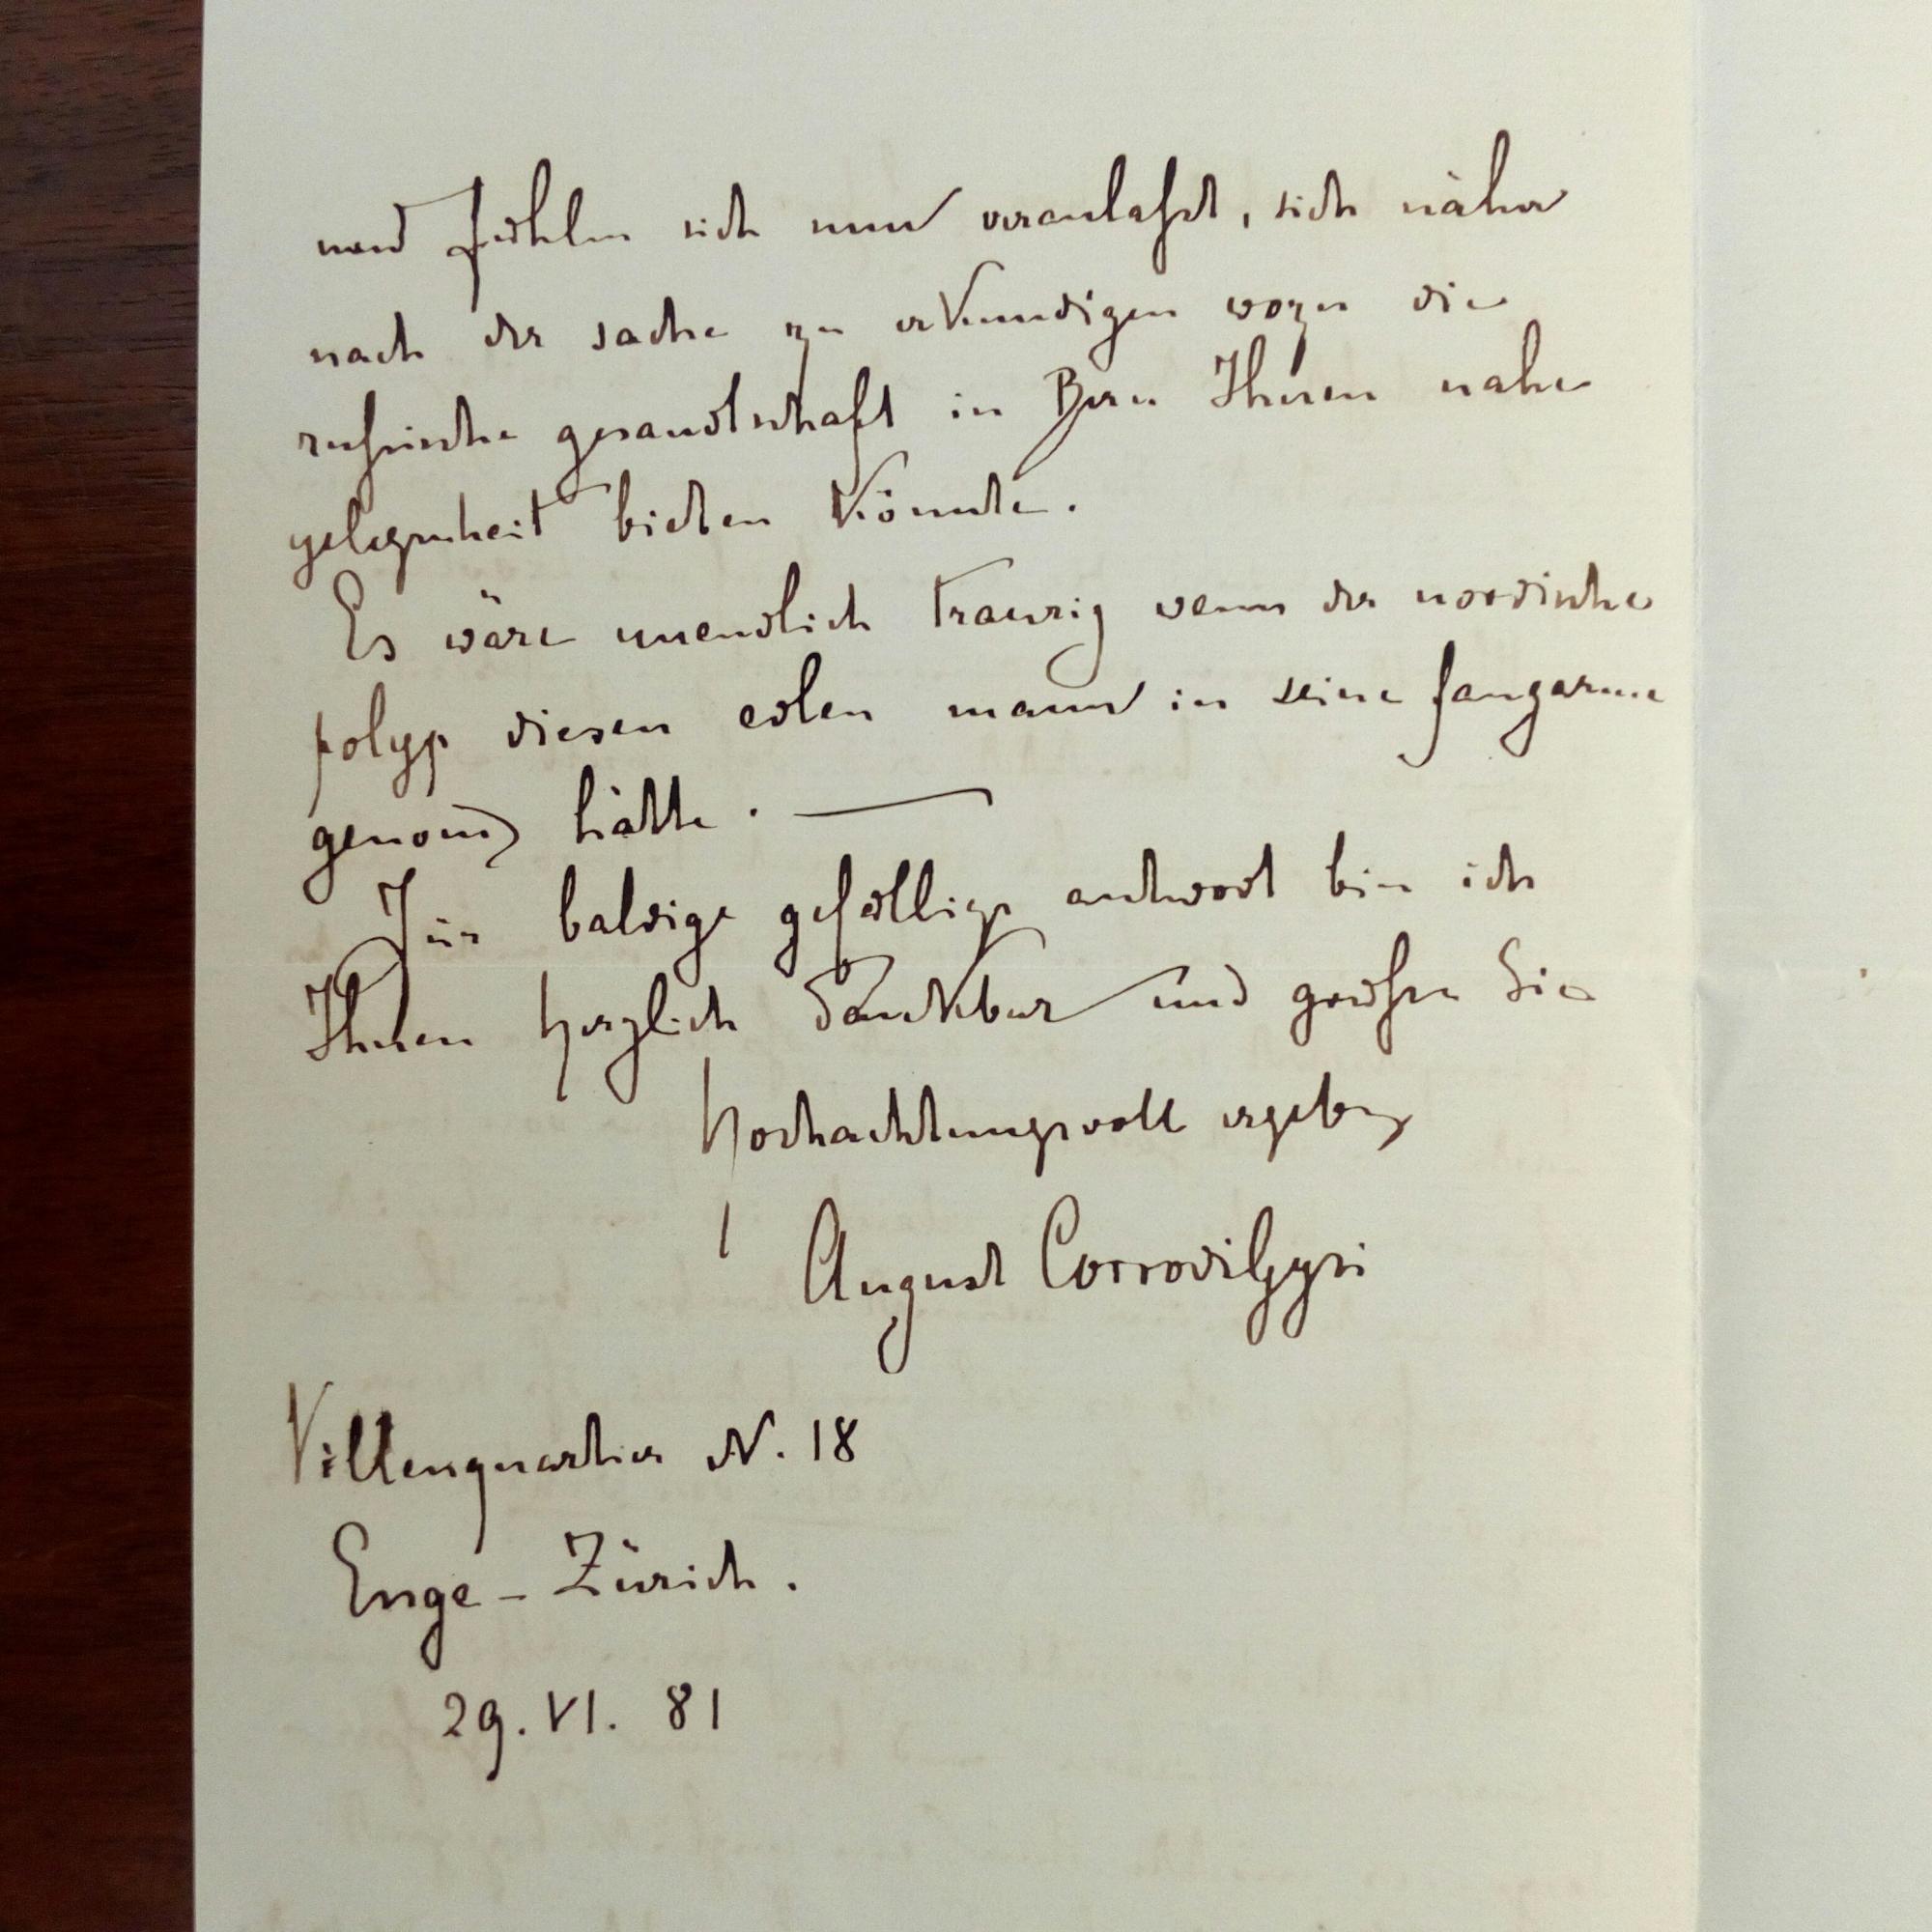 und fühlen sich nun veranlaßt, sich näher
nach der sache zu erkundigen wozu die
rußische gesandtschaft in Bern Ihnen nahe
gelegenheit bieten könnte.
Es wäre unendlich traurig wenn der nordische
polyp diesen edlen mann in seine fangarme
genom̄en hätte. —
Für baldige gefällige antwort bin ich
Ihnen herzlich dankbar und grüßen Sie
hochachtungsvoll ergeben
August Corrodi-Gysi
Villenquartier N. 18
Enge - Zürich.
29. VI. 81